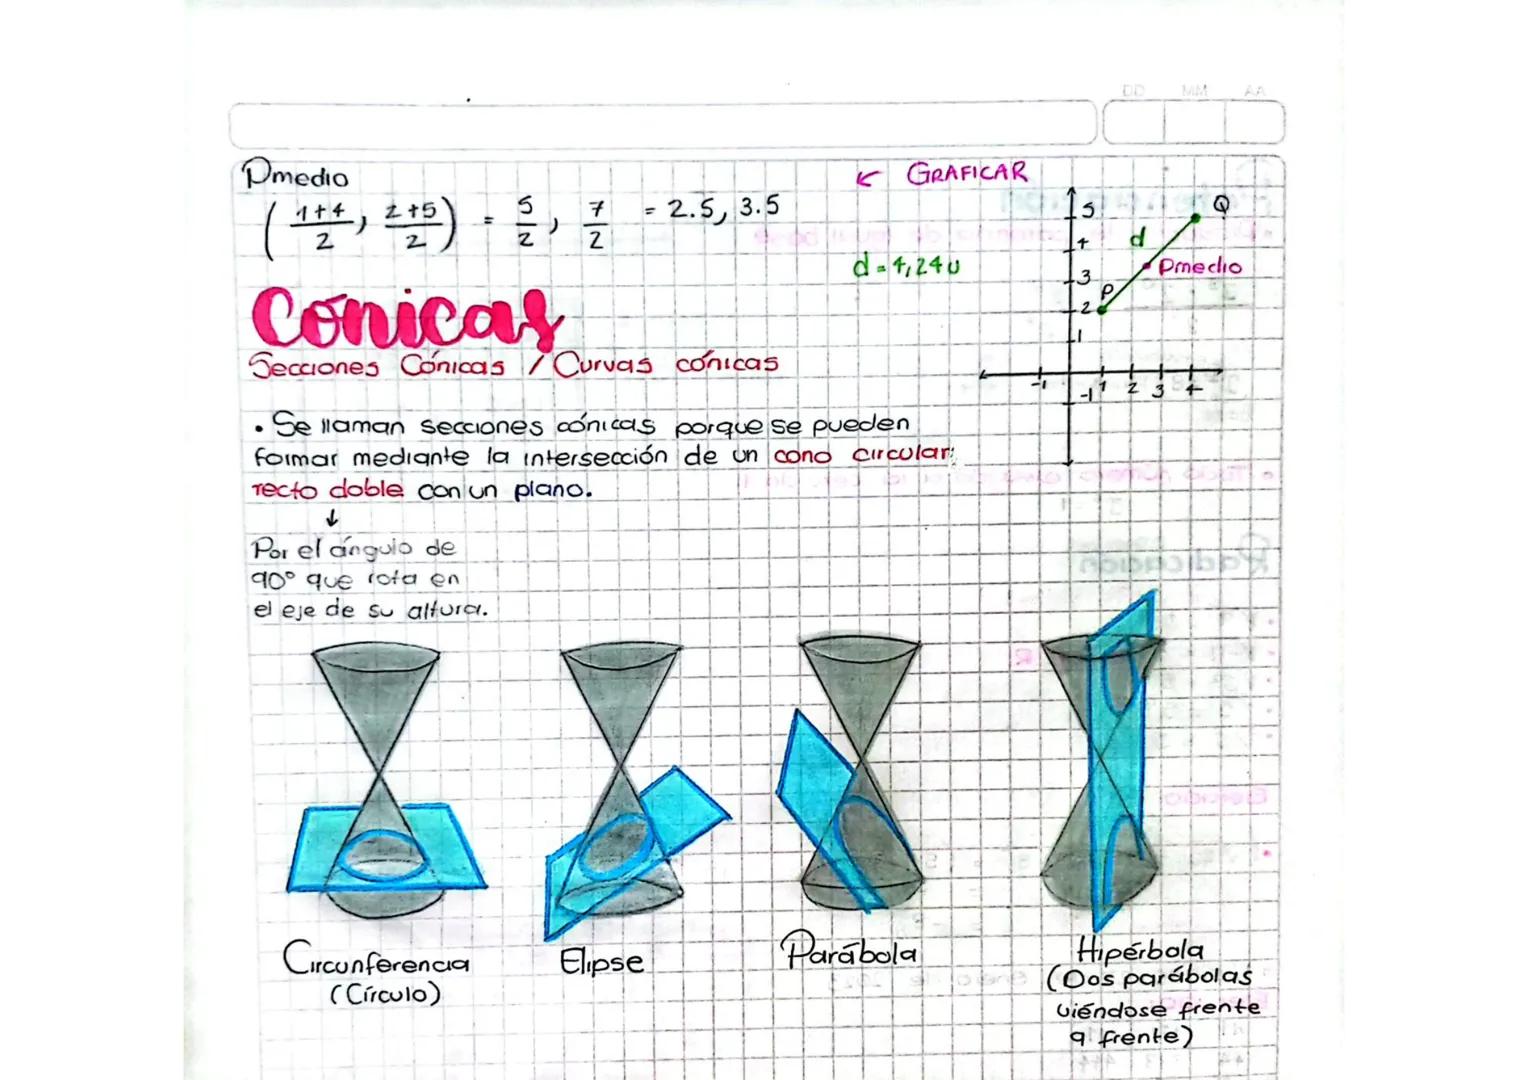 DD MM AA
Pmedio
(1+4/2, 2+5/2) = 5/2, 7/2 = 2.5, 3.5
← GRAFICAR
d = 4,24 u
5 Q
4 d
3 Pmedio
P
2
1
-1 1 2 3 4
-1
Cónicas
Secciones Cónicas / Curvas cónicas
• Se llaman secciones cónicas porque se pueden
formar mediante la intersección de un cono circular
recto doble con un plano.
↓
Por el ángulo de
90° que rota en
el eje de su altura.
Circunferencia
(Círculo)
Elipse
Parábola
Hipérbola
(Dos parábolas
viéndose frente
a frente)